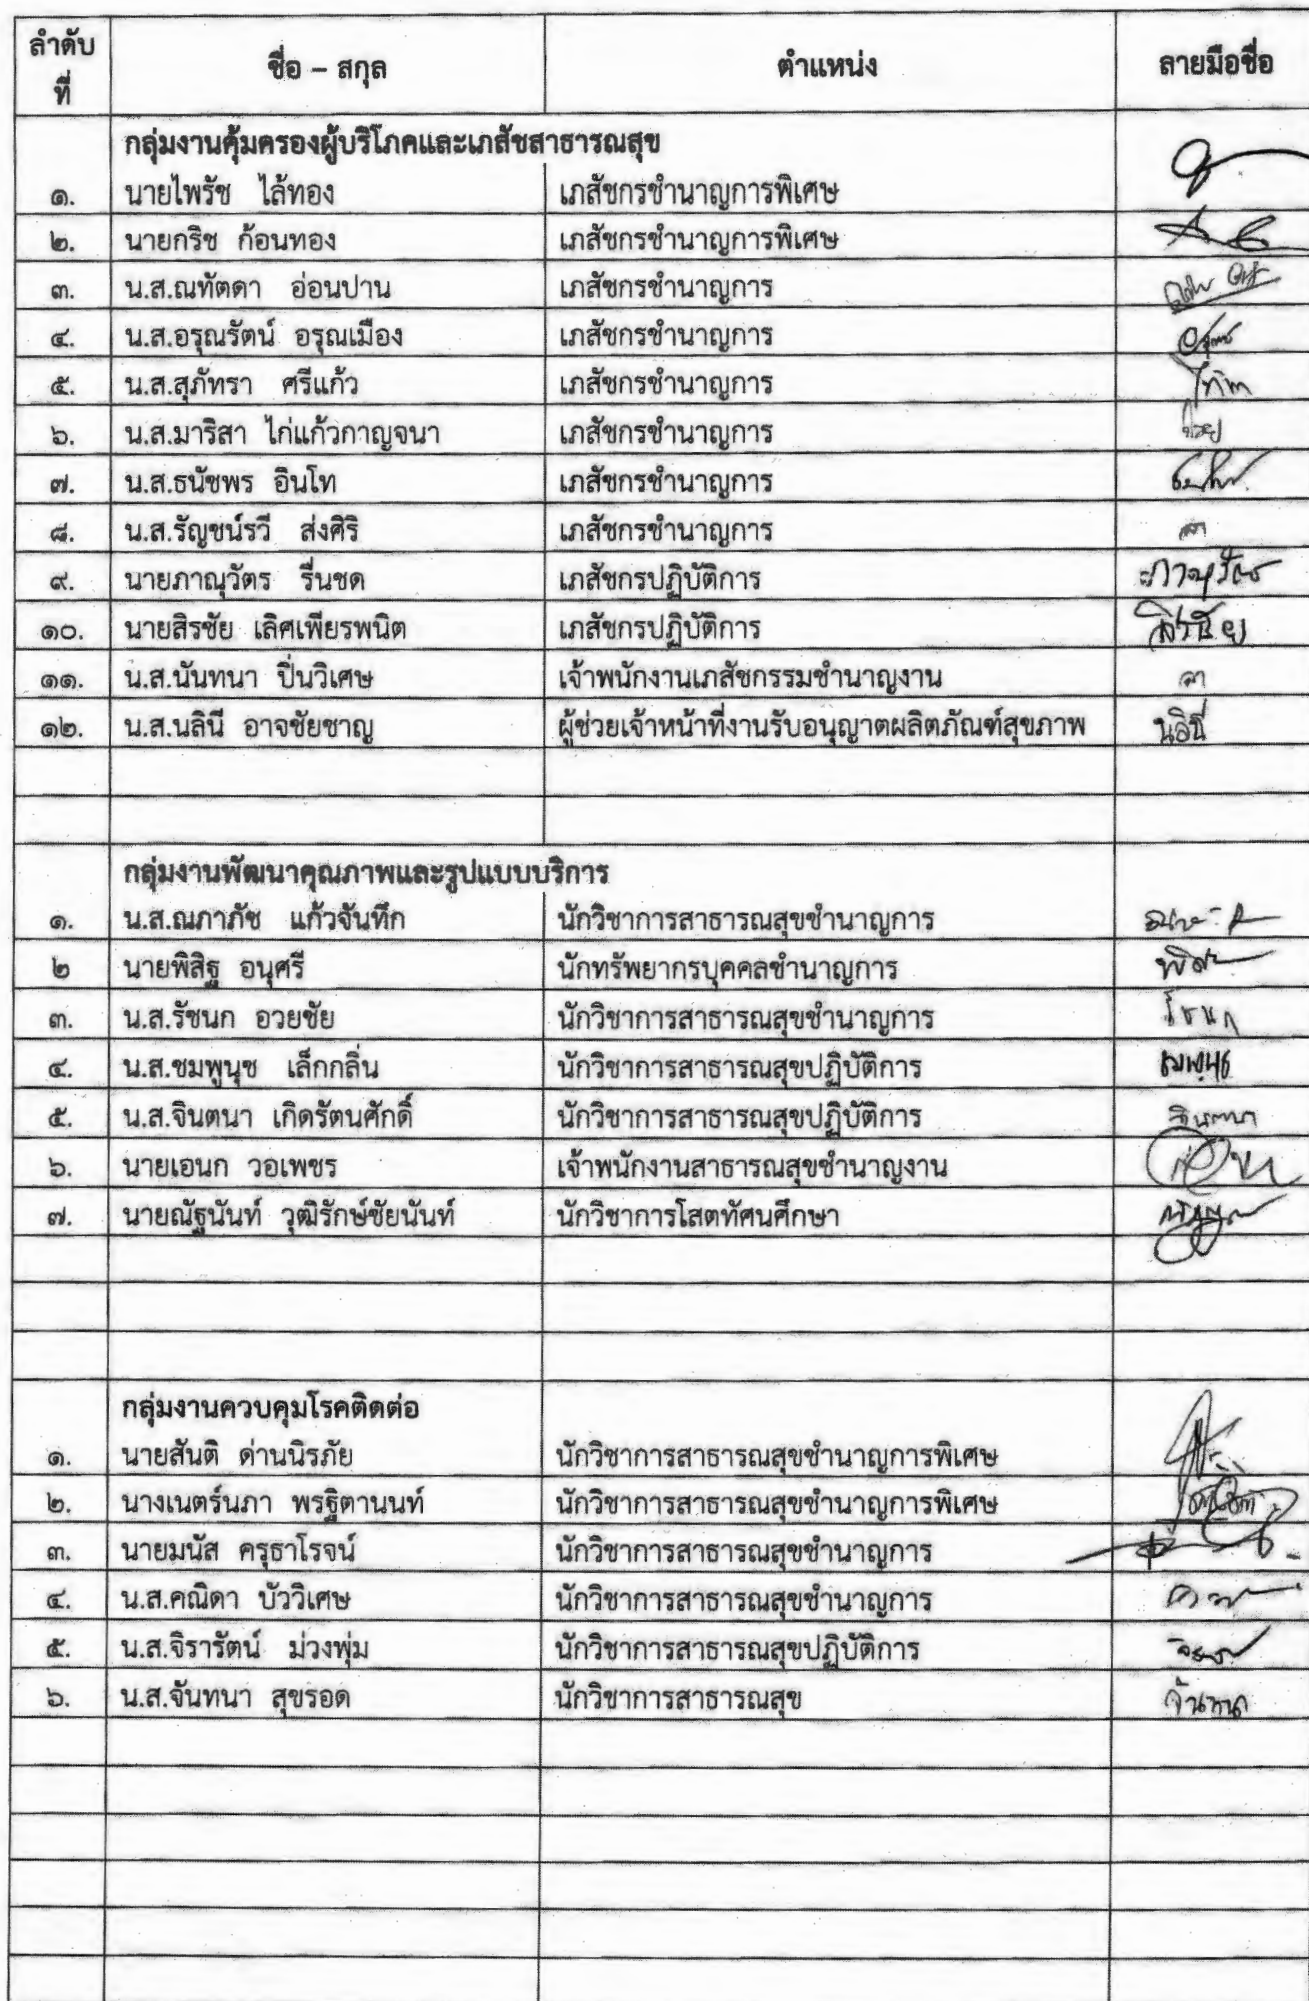 ลำดับที่ ชื่อ – สกุล ตำแหน่ง ลายมือชื่อ
กลุ่มงานคุ้มครองผู้บริโภคและเภสัชสาธารณสุข
๑. นายไพรัช ไล้ทอง เภสัชกรชำนาญการพิเศษ
๒. นายกริช ก้อนทอง เภสัชกรชำนาญการพิเศษ
๓. น.ส.ณทัตดา อ่อนปาน เภสัชกรชำนาญการ
๔. น.ส.อรุณรัตน์ อรุณเมือง เภสัชกรชำนาญการ
๕. น.ส.สุภัทรา ศรีแก้ว เภสัชกรชำนาญการ
๖. น.ส.มาริสา ไก่แก้วกาญจนา เภสัชกรชำนาญการ
๗. น.ส.ธนัชพร อินโท เภสัชกรชำนาญการ
๘. น.ส.รัญชน์รวี ส่งศิริ เภสัชกรชำนาญการ ลา
๙. นายภาณุวัตร รื่นชด เภสัชกรปฏิบัติการ ภาณุวัตร
๑๐. นายสิรชัย เลิศเพียรพนิต เภสัชกรปฏิบัติการ สิรชัย
๑๑. น.ส.นันทนา ปิ่นวิเศษ เจ้าพนักงานเภสัชกรรมชำนาญงาน ลา
๑๒. น.ส.นลินี อาจชัยชาญ ผู้ช่วยเจ้าหน้าที่งานรับอนุญาตผลิตภัณฑ์สุขภาพ นลินี
กลุ่มงานพัฒนาคุณภาพและรูปแบบบริการ
๑. น.ส.ณภาภัช แก้วจันทึก นักวิชาการสาธารณสุขชำนาญการ
๒ นายพิสิฐ อนุศรี นักทรัพยากรบุคคลชำนาญการ
๓. น.ส.รัชนก อวยชัย นักวิชาการสาธารณสุขชำนาญการ รัชนก
๔. น.ส.ชมพูนุช เล็กกลิ่น นักวิชาการสาธารณสุขปฏิบัติการ ชมพูนุช
๕. น.ส.จินตนา เกิดรัตนศักดิ์ นักวิชาการสาธารณสุขปฏิบัติการ จินตนา
๖. นายเอนก วอเพชร เจ้าพนักงานสาธารณสุขชำนาญงาน
๗. นายณัฐนันท์ วุฒิรักษ์ชัยนันท์ นักวิชาการโสตทัศนศึกษา
กลุ่มงานควบคุมโรคติดต่อ
๑. นายสันติ ด่านนิรภัย นักวิชาการสาธารณสุขชำนาญการพิเศษ
๒. นางเนตร์นภา พรฐิตานนท์ นักวิชาการสาธารณสุขชำนาญการพิเศษ
๓. นายมนัส ครุธาโรจน์ นักวิชาการสาธารณสุขชำนาญการ
๔. น.ส.คณิดา บัววิเศษ นักวิชาการสาธารณสุขชำนาญการ
๕. น.ส.จิรารัตน์ ม่วงพุ่ม นักวิชาการสาธารณสุขปฏิบัติการ
๖. น.ส.จันทนา สุขรอด นักวิชาการสาธารณสุข จันทนา